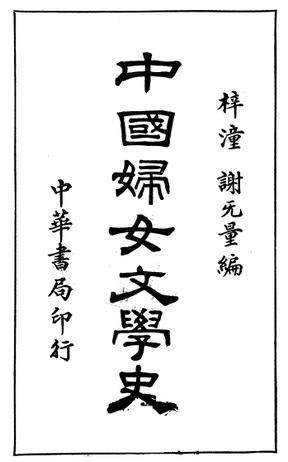 梓潼謝无量編
中國婦女文學史
中華書局印行